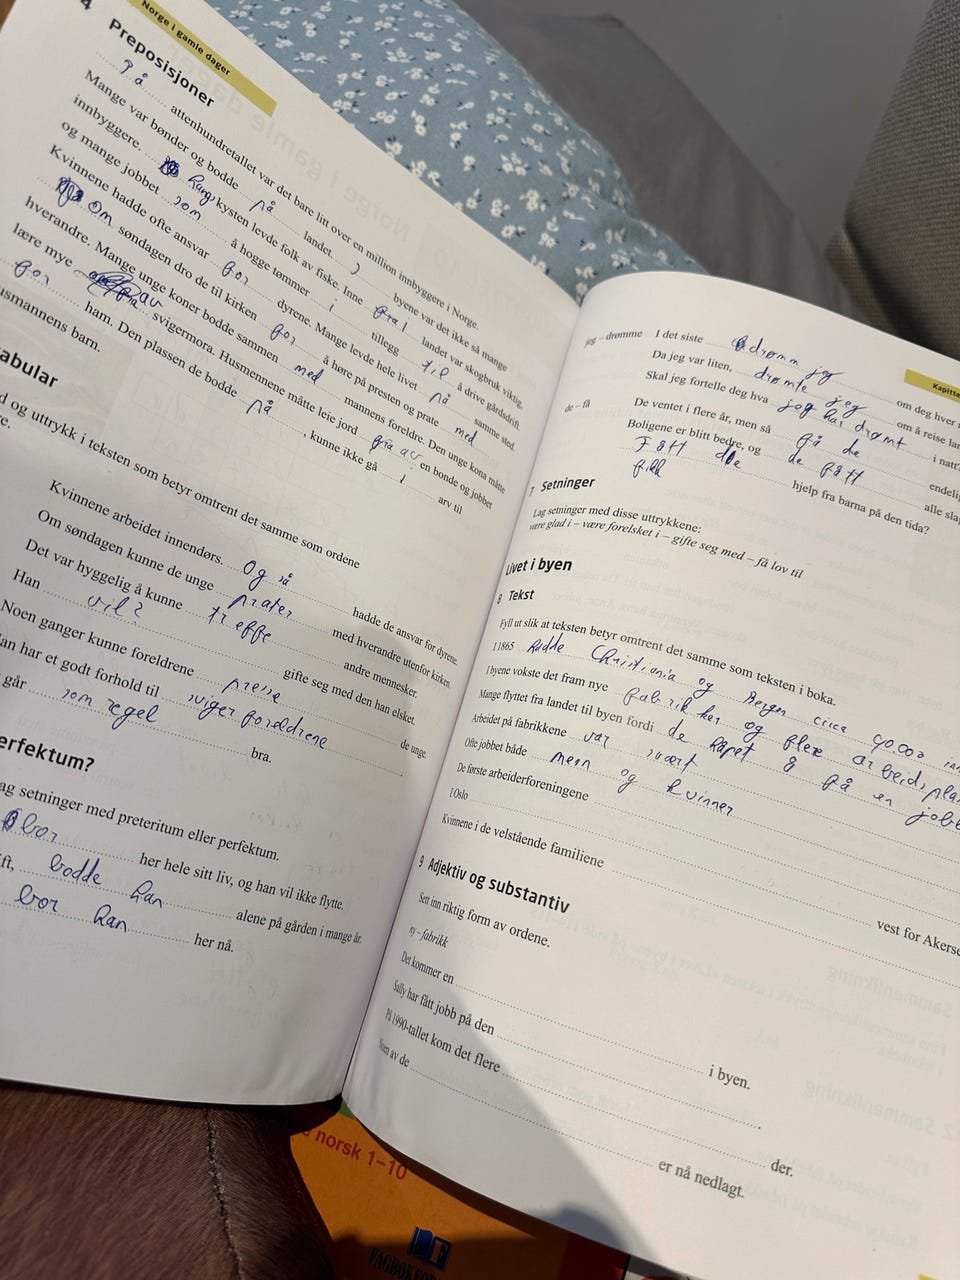 Norge i gamle dager
4 Preposisjoner
På attenhundretallet var det bare litt over en million innbyggere i Norge.
Mange var bønder og bodde på landet. I byene var det ikke så mange
innbyggere. kysten levde folk av fiske. Inne i landet var skogbruk viktig,
og mange jobbet som å hogge tømmer i tillegg til å drive gårdsdrift.
Kvinnene hadde ofte ansvar for dyrene. Mange levde hele livet på samme sted.
Om søndagen dro de til kirken for å høre på presten og prate med
hverandre. Mange unge koner bodde sammen med mannens foreldre. Den unge kona måtte
lære mye av svigermora. Husmennene måtte leie jord av en bonde og jobbet
for ham. Den plassen de bodde på, kunne ikke gå i arv til
usmannens barn.
abular
d og uttrykk i teksten som betyr omtrent det samme som ordene
e.
Kvinnene arbeidet innendørs. Og så hadde de ansvar for dyrene.
Om søndagen kunne de unge prater med hverandre utenfor kirken.
Det var hyggelig å kunne treffe andre mennesker.
Han vil? gifte seg med den han elsket.
Noen ganger kunne foreldrene presse de unge.
an har et godt forhold til svigerforeldrene.
går som regel bra.
erfektum?
ag setninger med preteritum eller perfektum.
bor her hele sitt liv, og han vil ikke flytte.
ift, bodde han alene på gården i mange år.
bor han her nå.
Kapitte
jeg – drømme I det siste drømm jeg om deg hver
Da jeg var liten, drømte jeg om å reise
Skal jeg fortelle deg hva jeg har drømt i natt?
de – få De ventet i flere år, men så få de endelig
Boligene er blitt bedre, og de fått alle
Fått de hjelp fra barna på den tida?
fikk
7 Setninger
Lag setninger med disse uttrykkene:
være glad i – være forelsket i – gifte seg med – få lov til
Livet i byen
8 Tekst
Fyll ut slik at teksten betyr omtrent det samme som teksten i boka.
I 1865 hadde Christiania og Bergen circa 40.000
I byene vokste det fram nye fabrikker og flere arbeidspla
Mange flyttet fra landet til byen fordi de håpet å få en jobb
Arbeidet på fabrikkene var svært
Ofte jobbet både menn og kvinner
De første arbeiderforeningene
I Oslo vest for Akerse
Kvinnene i de velstående familiene
9 Adjektiv og substantiv
Sett inn riktig form av ordene.
ny – fabrikk
Det kommer en i byen.
Sally har fått jobb på den .
På 1990-tallet kom det flere der.
Noen av de er nå nedlagt.
norsk 1–10
FAGBOKFOR